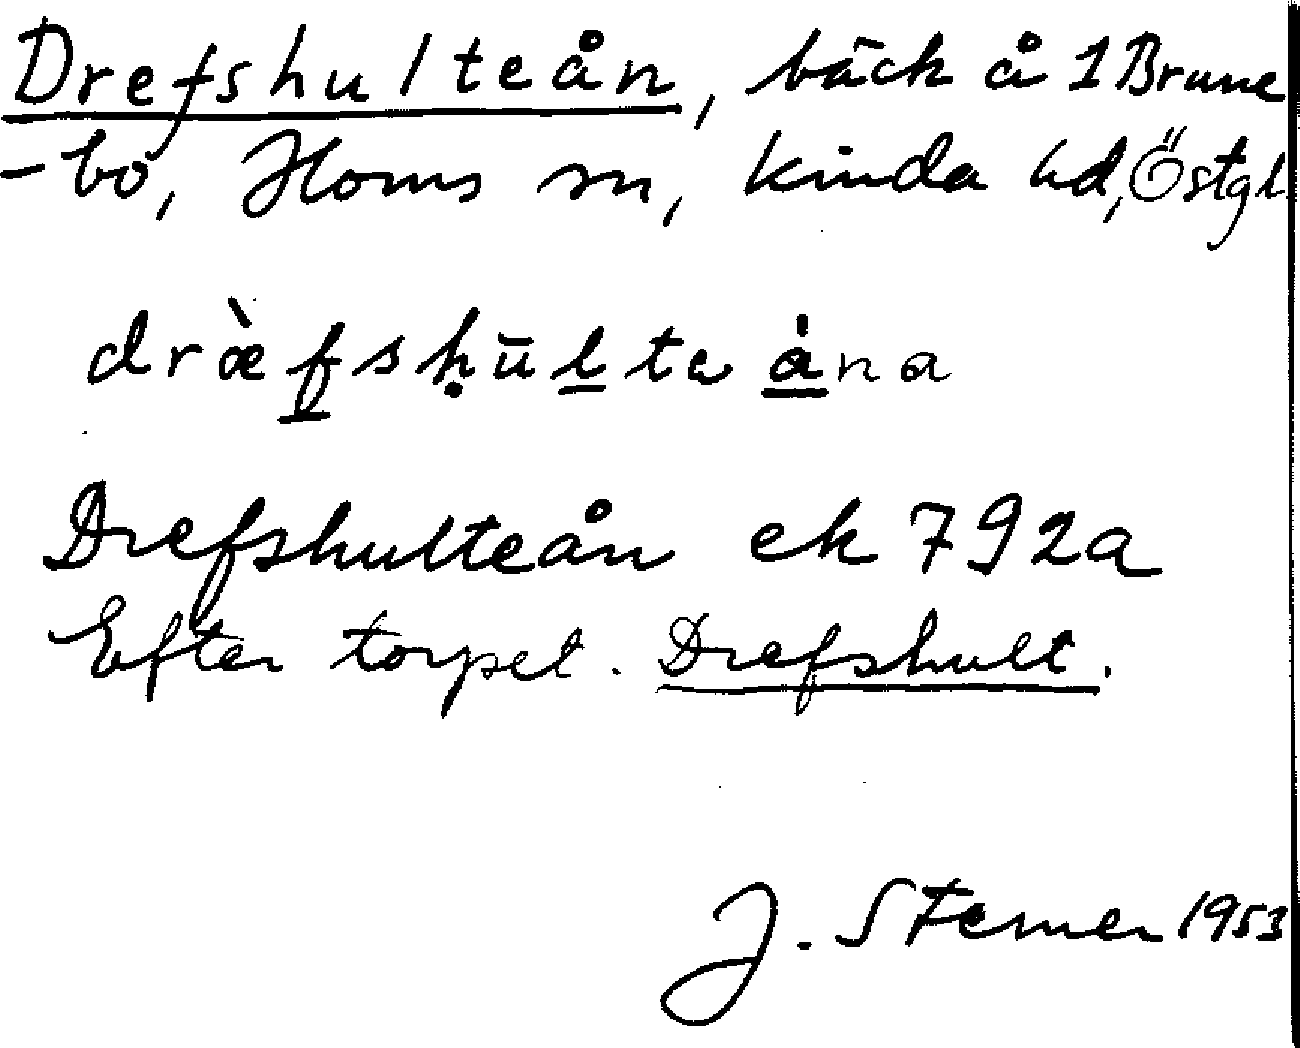 Drefshulteån, bäck å 1 Brune
-bo, Horns sn, kinda hd, Östgl.
dræ̀fsḥūl̲te å̲na
Drefshulteån ek 792a
Efter torpet. Drefshult.
J. Sterner 1953